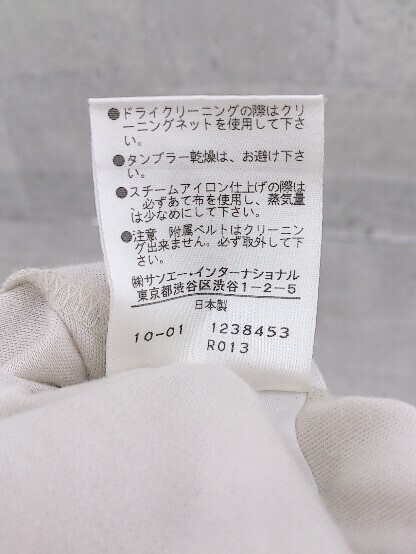 ●ドライクリーニングの際はクリ
ーニングネットを使用して下さ
い。
●タンブラー乾燥は、お避け下さ
い。
●スチームアイロン仕上げの際は
必ずあて布を使用し、蒸気量
は少なめにして下さい。
●注意 附属ベルトはクリーニン
グ出来ません。必ず取外して下
さい。
㈱サンエー・インターナショナル
東京都渋谷区渋谷1-2-5
日本製
10-01 1238453
R013